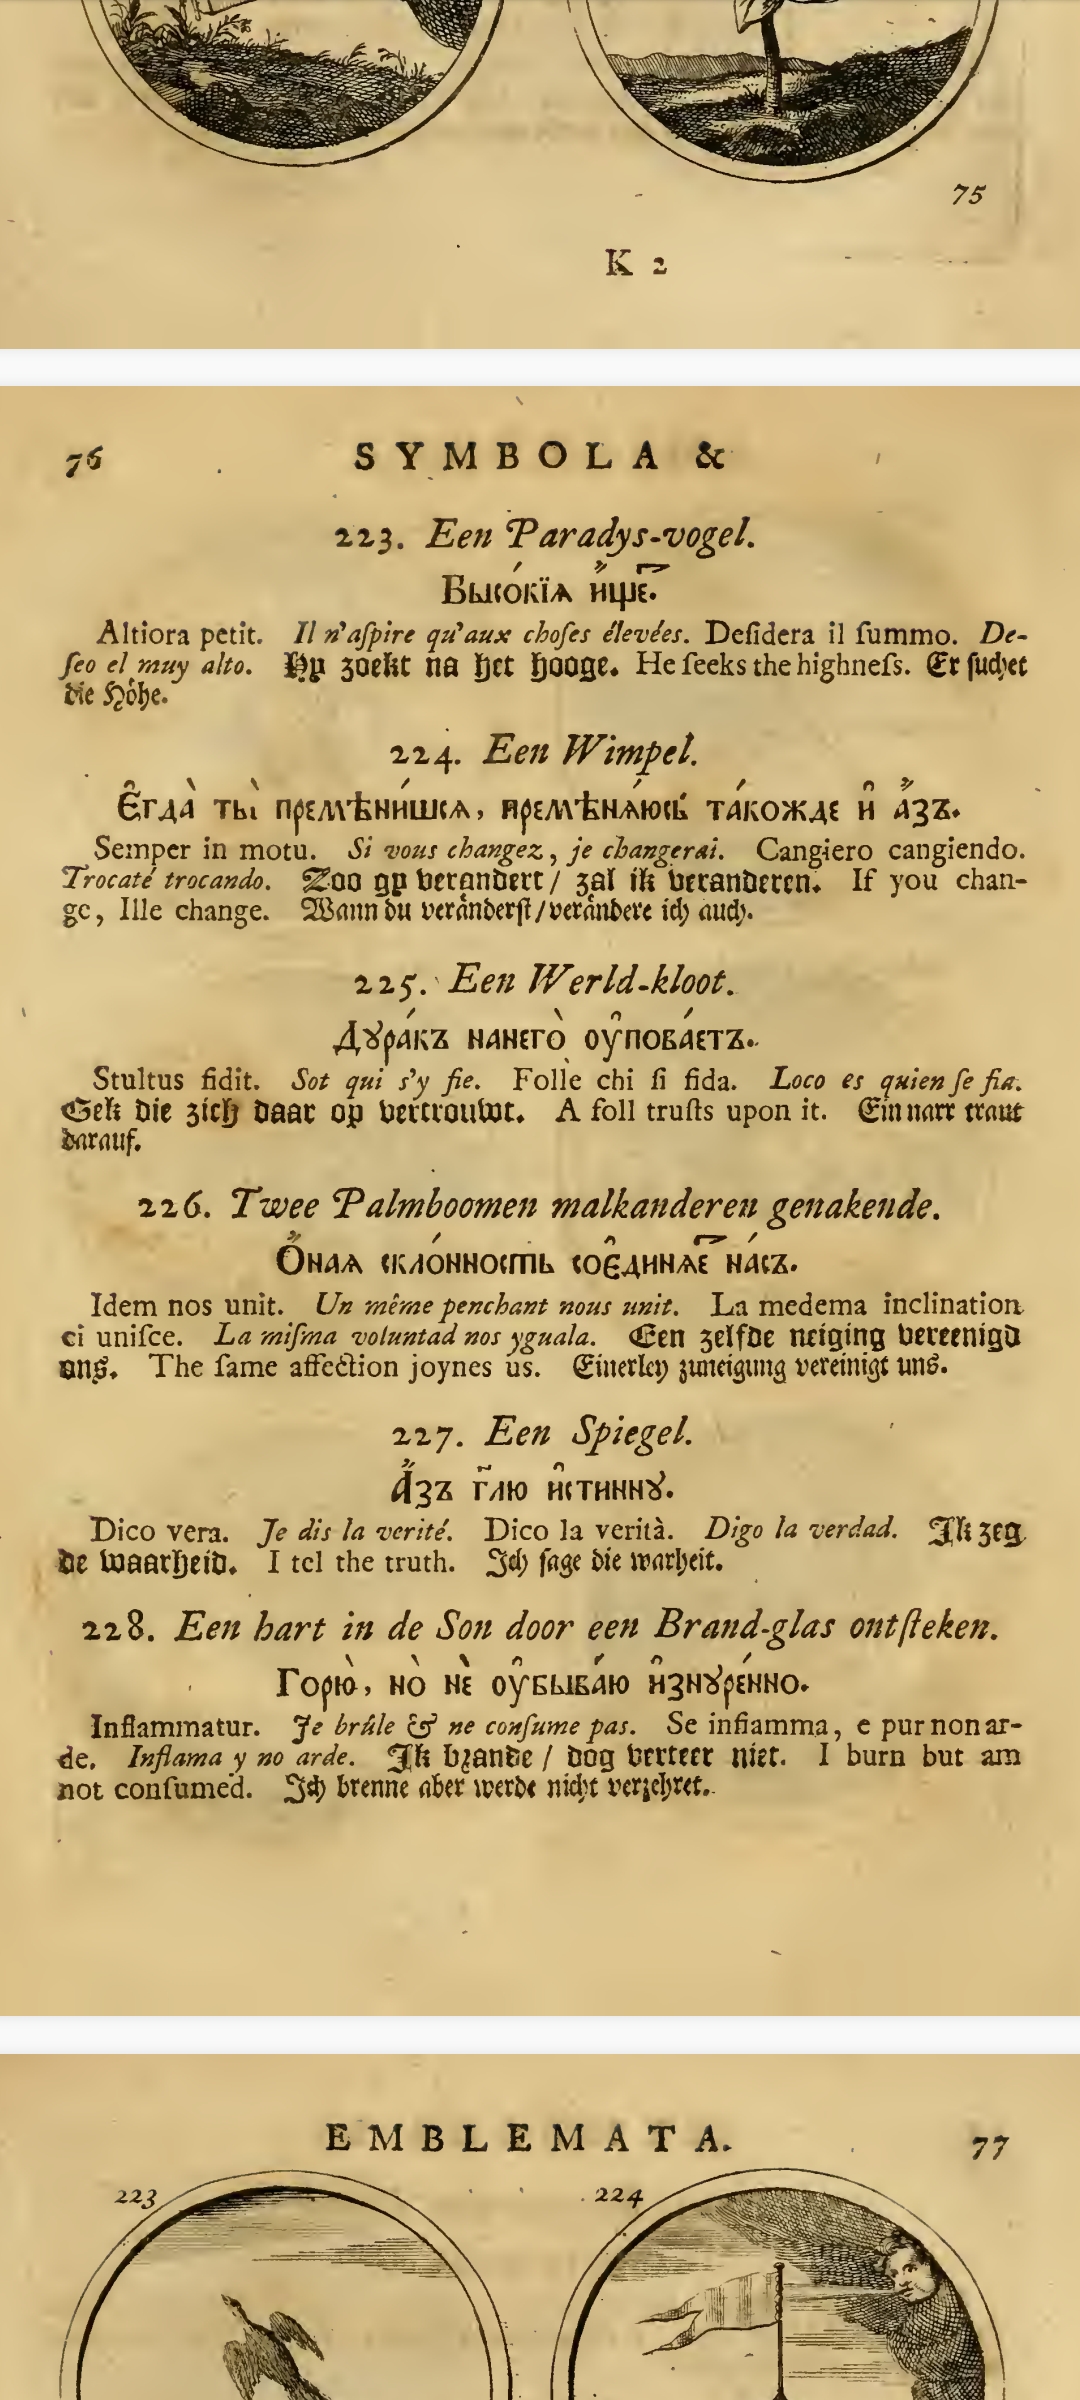 75
K 2
76 SYMBOLA &
223. Een Paradys-vogel.
Бысо́кїѧ и҆́щꙋе҃.
Altiora petit. Il n'aſpire qu'aux choſes élevées. Deſidera il ſummo. De-
ſeo el muy alto. Hy zoekt na het hooge. He ſeeks the highneſs. Er ſuchet
die Höhe.
224. Een Wimpel.
Є҆гда̀ ты̀ премѣни́шсѧ, премѣнѧ́юсь та́кожде и҆ а҆́зъ.
Semper in motu. Si vous changez, je changerai. Cangiero cangiendo.
Trocaté trocando. Zoo gy verandert / zal ik veranderen. If you chan-
ge, Ille change. Wann du veränderſt / verändere ich auch.
225. Een Werld-kloot.
Дꙋра́къ нанего̀ оу҆пова́етъ.
Stultus fidit. Sot qui s'y fie. Folle chi ſi fida. Loco es quien ſe fia.
Gek die zich daar op vertrouwt. A foll truſts upon it. Ein narr traut
darauf.
226. Twee Palmboomen malkanderen genakende.
Ѻ҆́наѧ скло́нность соє҆динѧе҃ на́съ.
Idem nos unit. Un même penchant nous unit. La medema inclination
ci uniſce. La miſma voluntad nos yguala. Een zelfde neiging vereenigd
ons. The ſame affection joynes us. Einerley zuneigung vereinigt uns.
227. Een Spiegel.
А҆́зъ г҃лю и҆стиннꙋ.
Dico vera. Je dis la verité. Dico la verità. Digo la verdad. Ik zeg
de waarheid. I tel the truth. Ich ſage die warheit.
228. Een hart in de Son door een Brand-glas ontſteken.
Горю̀, но̀ нѐ оу҆быва́ю и҆знꙋре́нно.
Inflammatur. Je brûle & ne conſume pas. Se infiamma, e pur non ar-
de. Inflama y no arde. Ik brande / dog verteer niet. I burn but am
not conſumed. Ich brenne aber werde nicht verzehret.
EMBLEMATA. 77
223 224